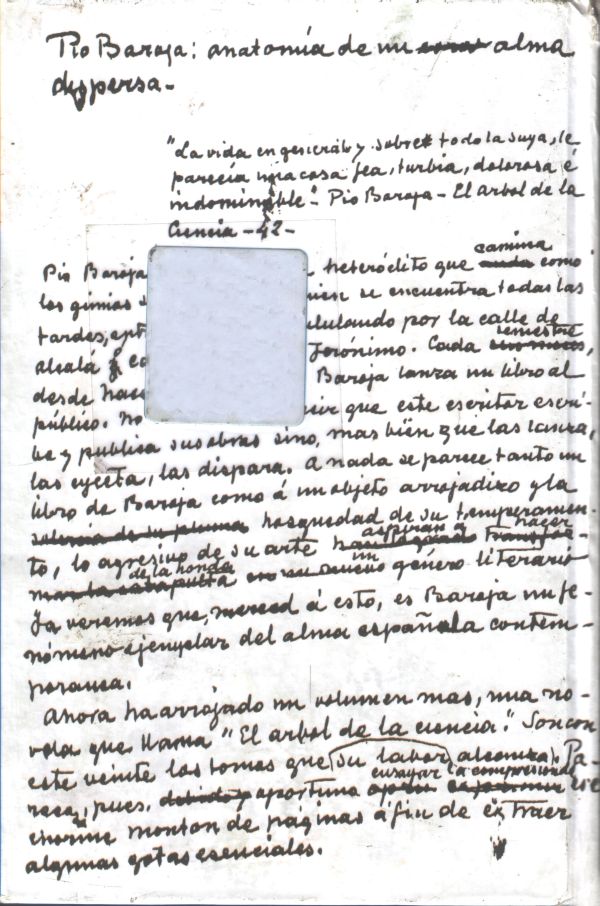 Pio Baroja: anatomía de un alma
dispersa.-
"La vida en general y sobre todo la suya, le
parecía una cosa fea, turbia, dolorosa é
indominable"- Pio Baroja - El arbol de la
Ciencia - 42 -
Pio Baroja heteróclito que camina como
los gimios se encuentra todas las
tardes, ululando por la calle de
alcalá ó Jerónimo. Cada semestre,
desde Baroja lanza un libro al
público. No que este escritor escri-
be y publica sus obras sino, mas bien que las lanza,
las eyecta, las dispara. A nada se parece tanto un
libro de Baroja como á un objeto arrojadizo y la
hosquedad de su temperamen-
to, lo agresivo de su arte aspiran a hacer
de la honda un género literario
Ya veremos que, merced á esto, es Baroja un fe-
nómeno ejemplar del alma española contem-
poranea.
Ahora ha arrojado un volumen mas, una no-
vela que llama "El arbol de la ciencia". Son con
este veinte los tomos que su labor alcanza. Pa-
rece, pues, oportuna ensayar la compresion de ese
enorme monton de páginas á fin de extraer
algunas gotas esenciales.